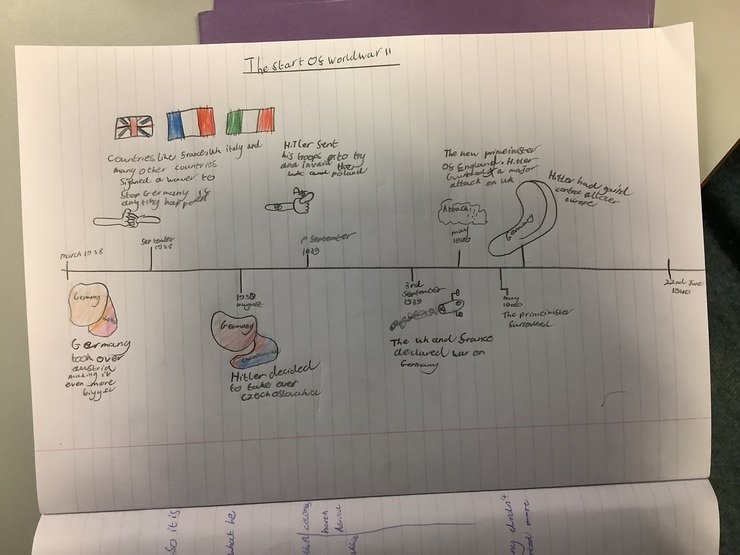 The start Of World war II
Countries like france, uk italy and
many other countries
signed a waver to
stop Germany if
anything happened
Hitler sent
his troops onto try
and invaid the
uk and poland
The new primeinister
Of England. Hitler
launched a major
attack on uk
Hitler had gaind
control after
europe
Attack!!
Germany
march 1938
September
1938
1st September
1939
may
1940
Germany
Germany
took over
austria
making it
even more
bigger
1938
august
Germany
Hitler decided
to take over
Czechoslovakia
3rd
September
1939
The uk and france
declared war on
Germany
may
1940
The primeinister
Surrendered
22nd June
1940
So it is
what he
ny didn't
ted more